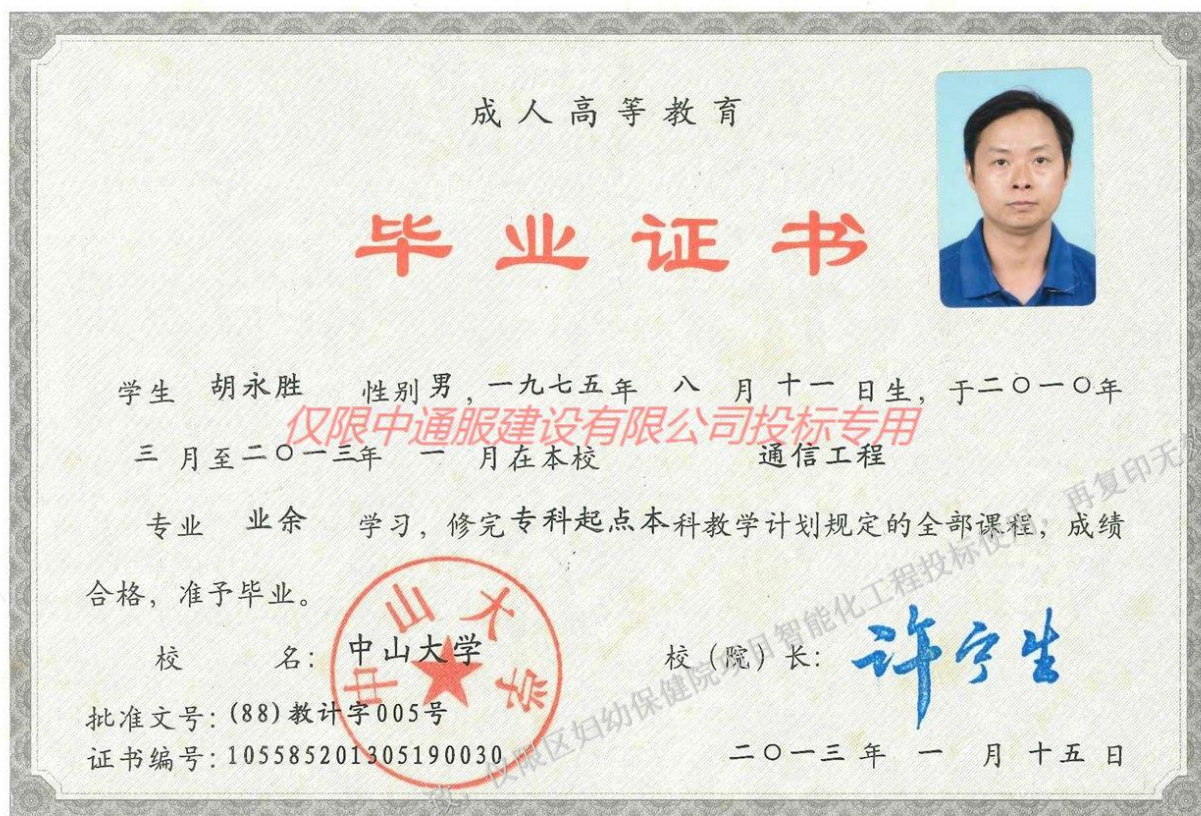 成人高等教育
毕业证书
学生 胡永胜 性别 男，一九七五年 八 月 十一 日生，于二〇一〇年
仅限中通服建设有限公司投标专用
三 月至二〇一三年 一 月在本校 通信工程
专业 业余 学习，修完专科起点本科教学计划规定的全部课程，成绩
合格，准予毕业。
中山大学
校 名：中山大学 校（院）长：许宁生
批准文号：(88)教计字005号
证书编号：105585201305190030 二〇一三 年 一 月 十五 日
仅限区妇幼保健院项目智能化工程投标使用，再复印无